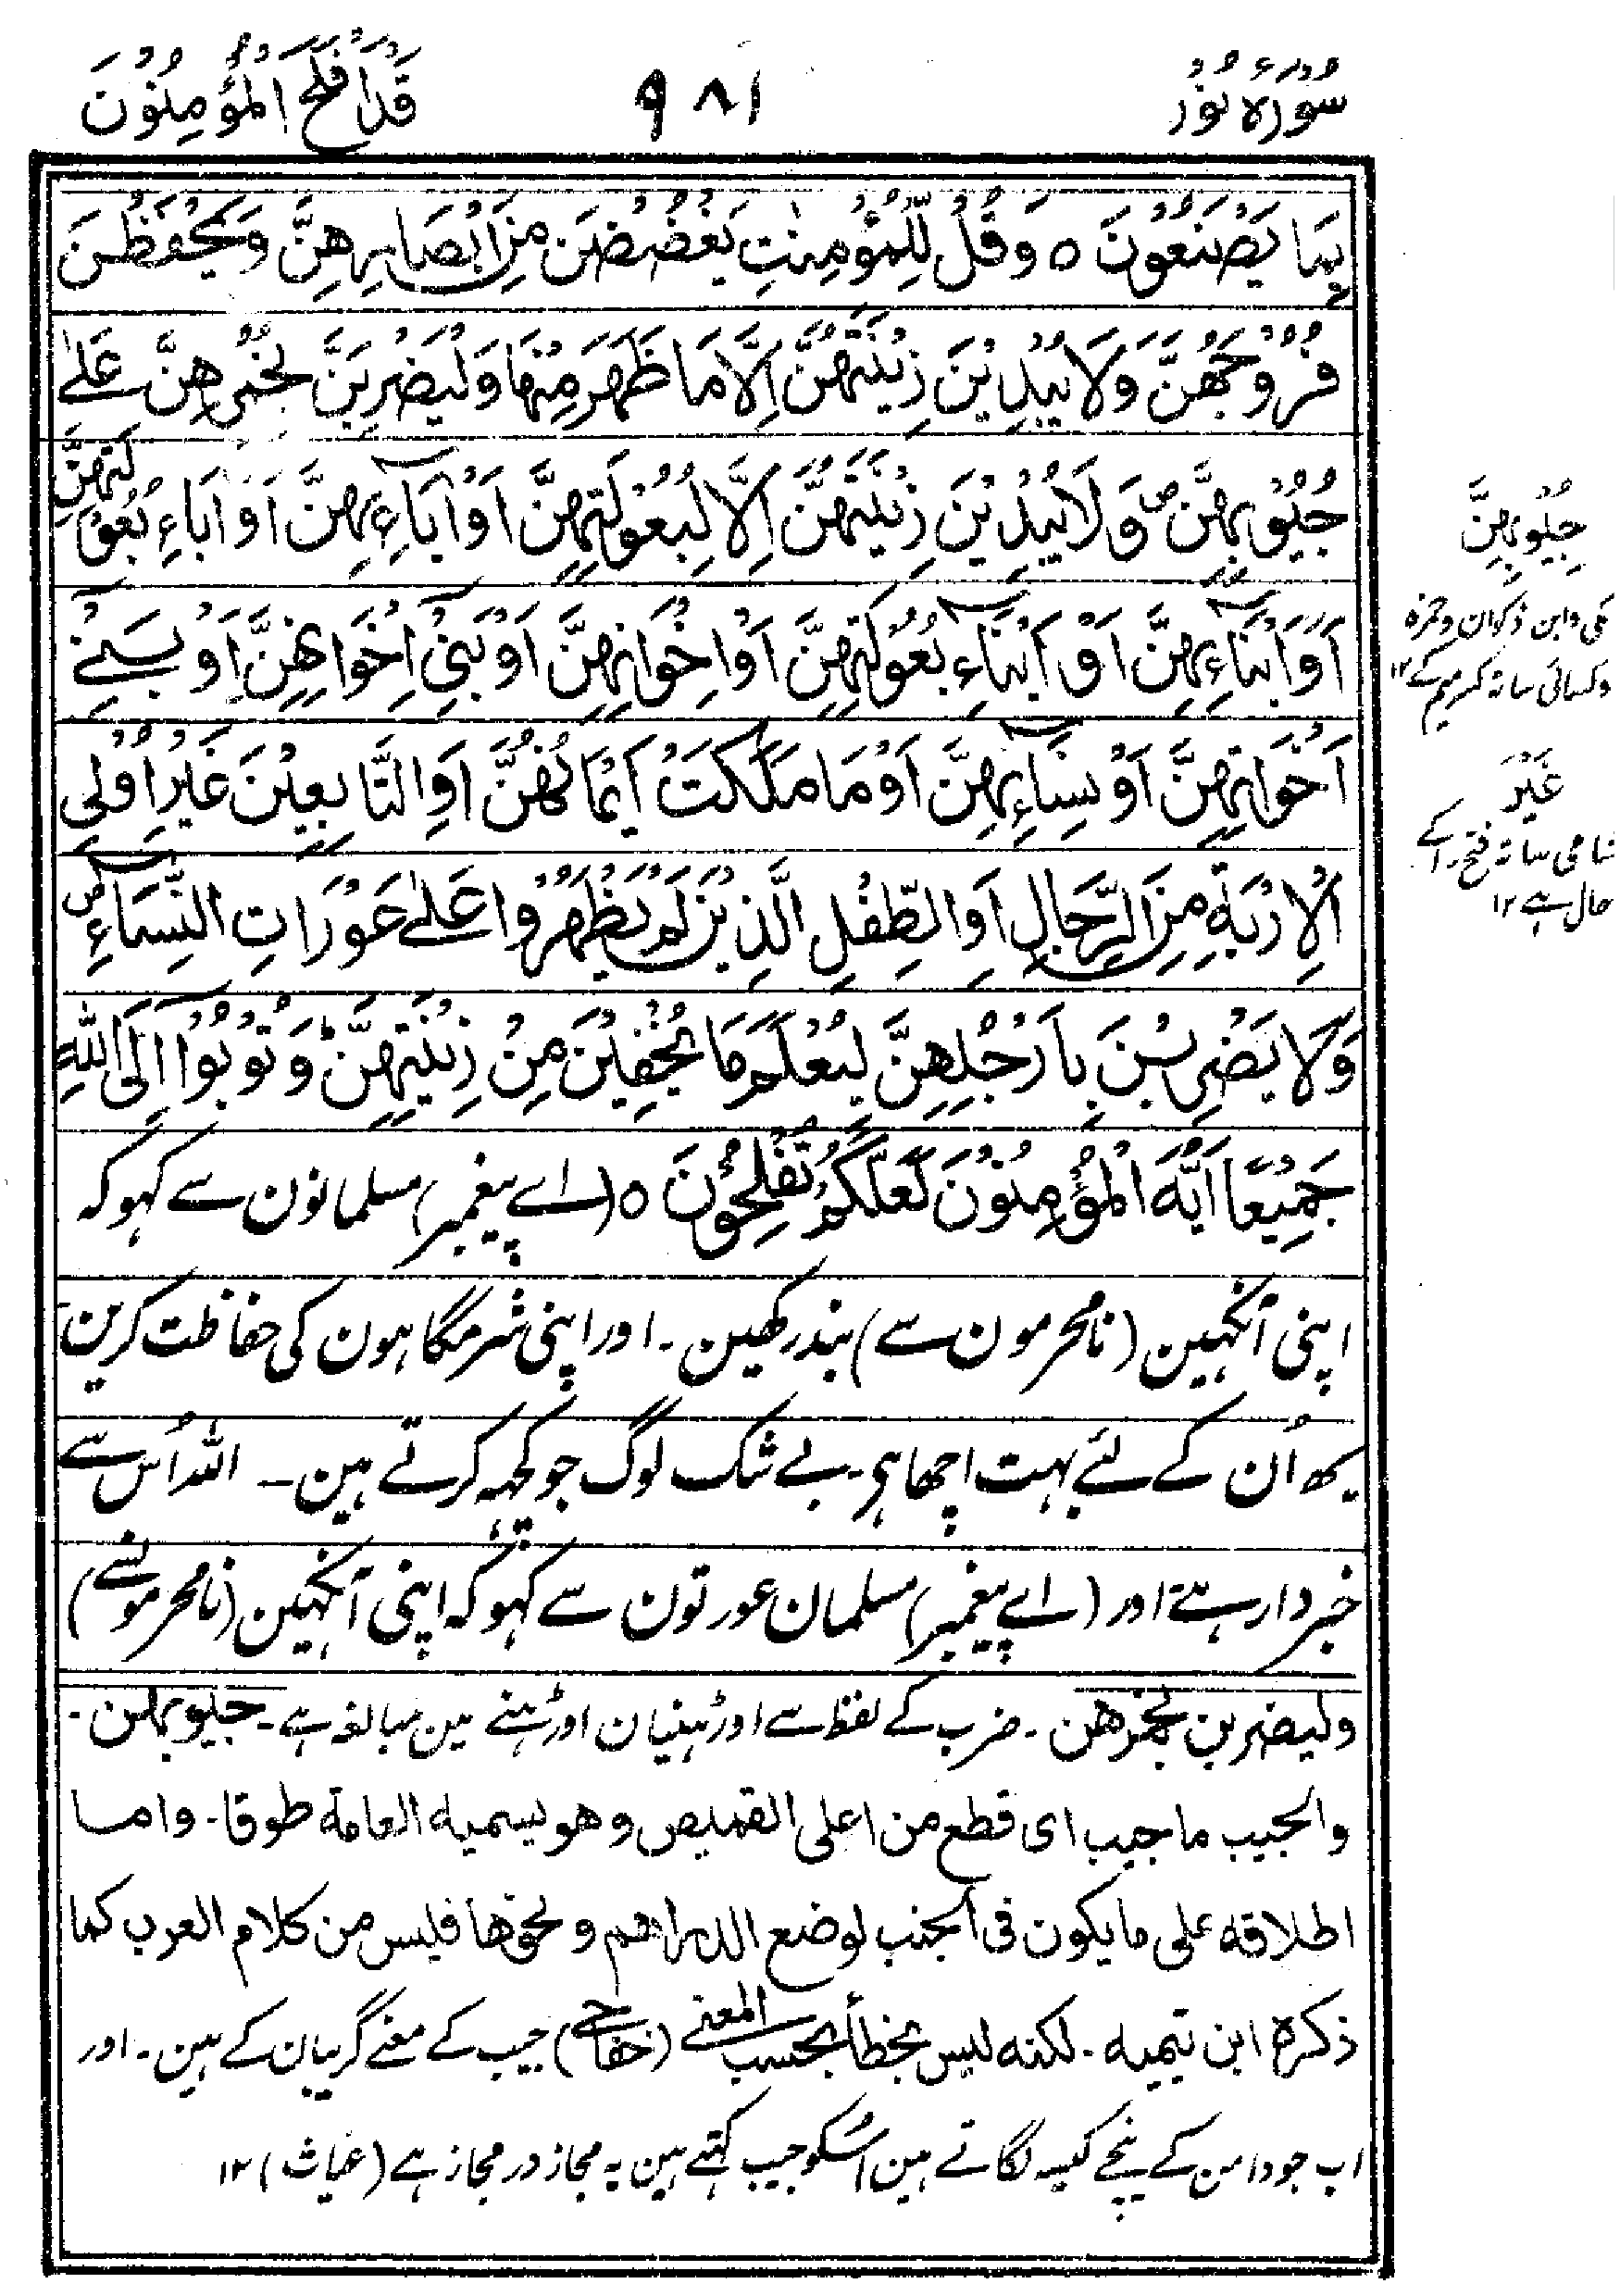 سُوْرَةُ نُوْرْ
٩٨١
قَدْ اَفْلَحَ الْمُؤْمِنُوْنَ
بِمَا يَصْنَعُوْنَ ٥ وَقُلْ لِّلْمُؤْمِنٰتِ يَغْضُضْنَ مِنْ اَبْصَارِهِنَّ وَيَحْفَظْنَ
فُرُوْجَهُنَّ وَلَا يُبْدِيْنَ زِيْنَتَهُنَّ اِلَّا مَا ظَهَرَ مِنْهَا وَلْيَضْرِبْنَ بِخُمُرِهِنَّ عَلٰى
جُيُوْبِهِنَّ ص وَلَا يُبْدِيْنَ زِيْنَتَهُنَّ اِلَّا لِبُعُوْلَتِهِنَّ اَوْ اٰبَآءِهِنَّ اَوْ اٰبَاءِ بُعُوْلَتِهِنَّ
اَوْ اَبْنَآءِهِنَّ اَوْ اَبْنَآءِ بُعُوْلَتِهِنَّ اَوْ اِخْوَانِهِنَّ اَوْ بَنِىْٓ اِخْوَانِهِنَّ اَوْ بَنِىْ
اَخَوَاتِهِنَّ اَوْ نِسَآءِهِنَّ اَوْ مَا مَلَكَتْ اَيْمَانُهُنَّ اَوِ التَّابِعِيْنَ غَيْرِ اُولِى
الْاِرْبَةِ مِنَ الرِّجَالِ اَوِ الطِّفْلِ الَّذِيْنَ لَمْ يَظْهَرُوْا عَلٰى عَوْرَاتِ النِّسَآءِ ص
وَلَا يَضْرِبْنَ بِاَرْجُلِهِنَّ لِيُعْلَمَ مَا يُخْفِيْنَ مِنْ زِيْنَتِهِنَّ ط وَتُوْبُوْٓا اِلَى اللّٰهِ
جَمِيْعًا اَيُّهَ الْمُؤْمِنُوْنَ لَعَلَّكُمْ تُفْلِحُوْنَ ٥ (اے پیغمبر) مسلمانون سے کہو کہ
اپنی آنکہین (نامحرمون سے) بند رکھین۔ اور اپنی شرمگاہون کی حفاظت کرین
یہ اُن کے لئے بہت اچھا ہی۔ بے شک لوگ جو کچہہ کرتے ہین ۔ اللہ اُس سے
خبردار ہے اور (اے پیغمبر) مسلمان عورتون سے کہو کہ اپنی آنکہین (نامحرمونسے)
ولیضربن بخمرهن ۔ ضرب کے لفظ سے اوڑہنیان اوڑہنے مین مبالغہ ہے۔ جیوبهن ۔
والجیب ما جیب ای قطع من اعلی القمیص وهو یسمیه العامة طوقا ۔ واما
اطلاقه علی ما یکون فی الجنب لوضع الدراهم ونحوها فلیس من کلام العرب کما
ذکره ابن تیمیه ۔ لکنه لیس بخطأ بحسب المعنی (خفاجی) جیب کے معنے گریبان کے ہین۔ اور
اب جو دامن کے نیچے کیسہ لگاتے ہین اُسکو جیب کہتے ہین یہ مجاز در مجاز ہے (غیاث) ۱۲
جِيُوْبِهِنَّ
مکی و ابن ذکوان و حمزہ
و کسائی ساتہ کسر جیم کے ۱۲
غَيْرَ
شامی ساتہ فتح کے
حال ہے ۱۲